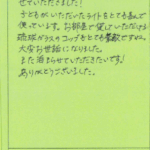 せていただきました!
子どもが、いただいたライトをとても喜んで
使っています。お部屋で使していただける
琉球ガラスのコップもとても素敵ですね。
大変お世話になりました。
また泊まらせていただきたいです!
ありがとうございました。